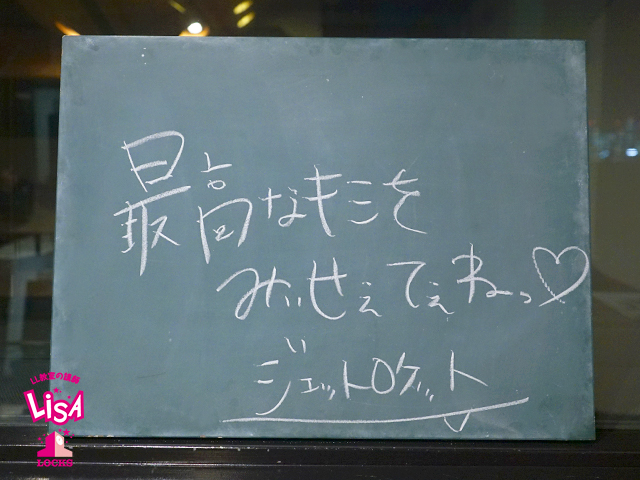 最高なキミを
みぃせぇてぇねっ♡
ジェットロケット
LL教室の講師
LiSA
LOCKS!